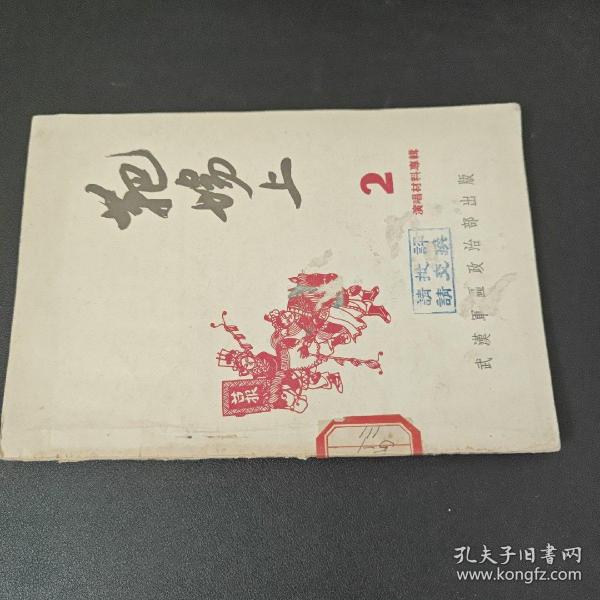 靶場上
2
演唱材料專輯
請批評
請交換
武漢軍區政治部出版
喜报
孔夫子旧书网
www.kongfz.com